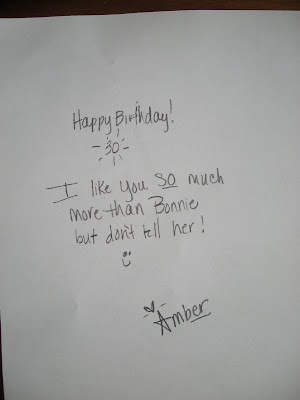 Happy Birthday!
30
I like you SO much
more than Bonnie
but don't tell her!
Amber